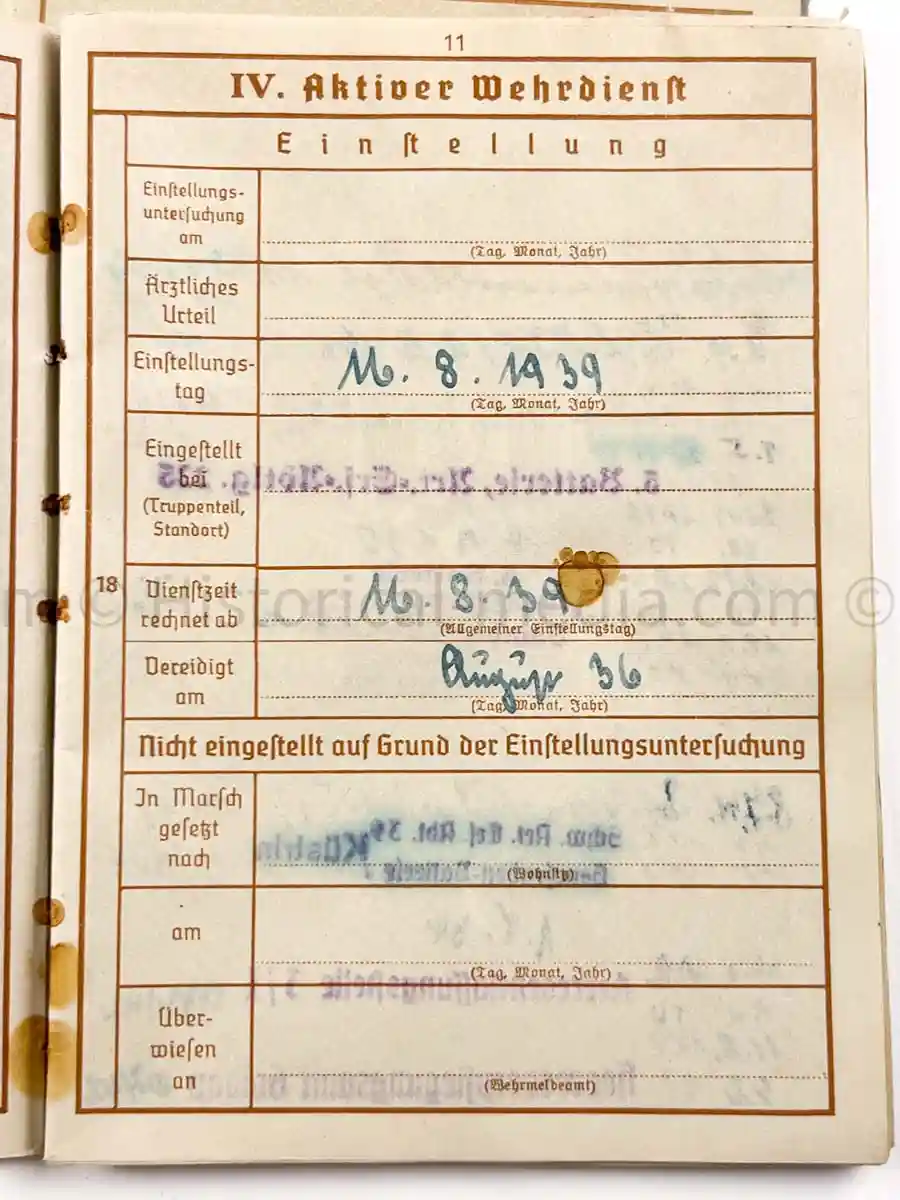 11
IV. Aktiver Wehrdienst
Einstellung
Einstellungs-
untersuchung
am
(Tag, Monat, Jahr)
Ärztliches
Urteil
Einstellungs-
tag
16. 8. 1939
(Tag, Monat, Jahr)
Eingestellt
bei
(Truppenteil,
Standort)
18
Dienstzeit
rechnet ab
16. 8. 39
(Allgemeiner Einstellungstag)
© Historicalmedia.com ©
Vereidigt
am
August 36
(Tag, Monat, Jahr)
Nicht eingestellt auf Grund der Einstellungsuntersuchung
In Marsch
gesetzt
nach
(Wohnsitz)
am
(Tag, Monat, Jahr)
Über-
wiesen
an
(Wehrmeldeamt)